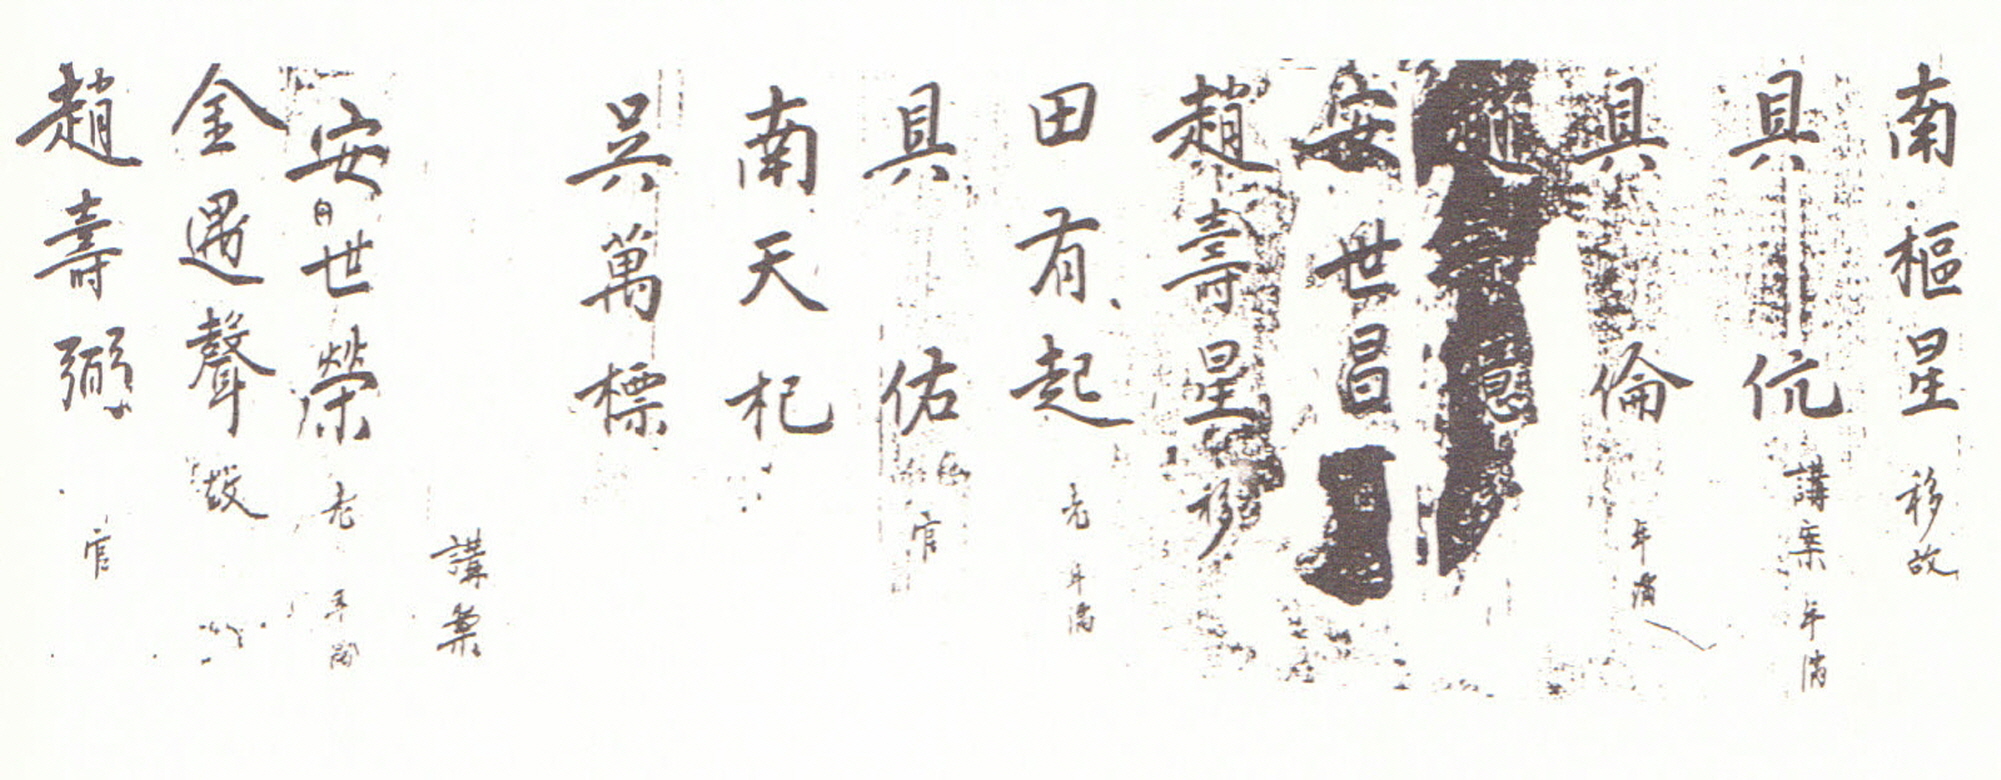 南樞星 移故
具伉 講案 年滿
具倫 年滿
趙壽億
安世昌
趙壽星 移
田有起 老 年滿
具佑 官
南天杞
吳萬標
講案
安世榮 老 年滿
金遇聲 故
趙壽弼 官